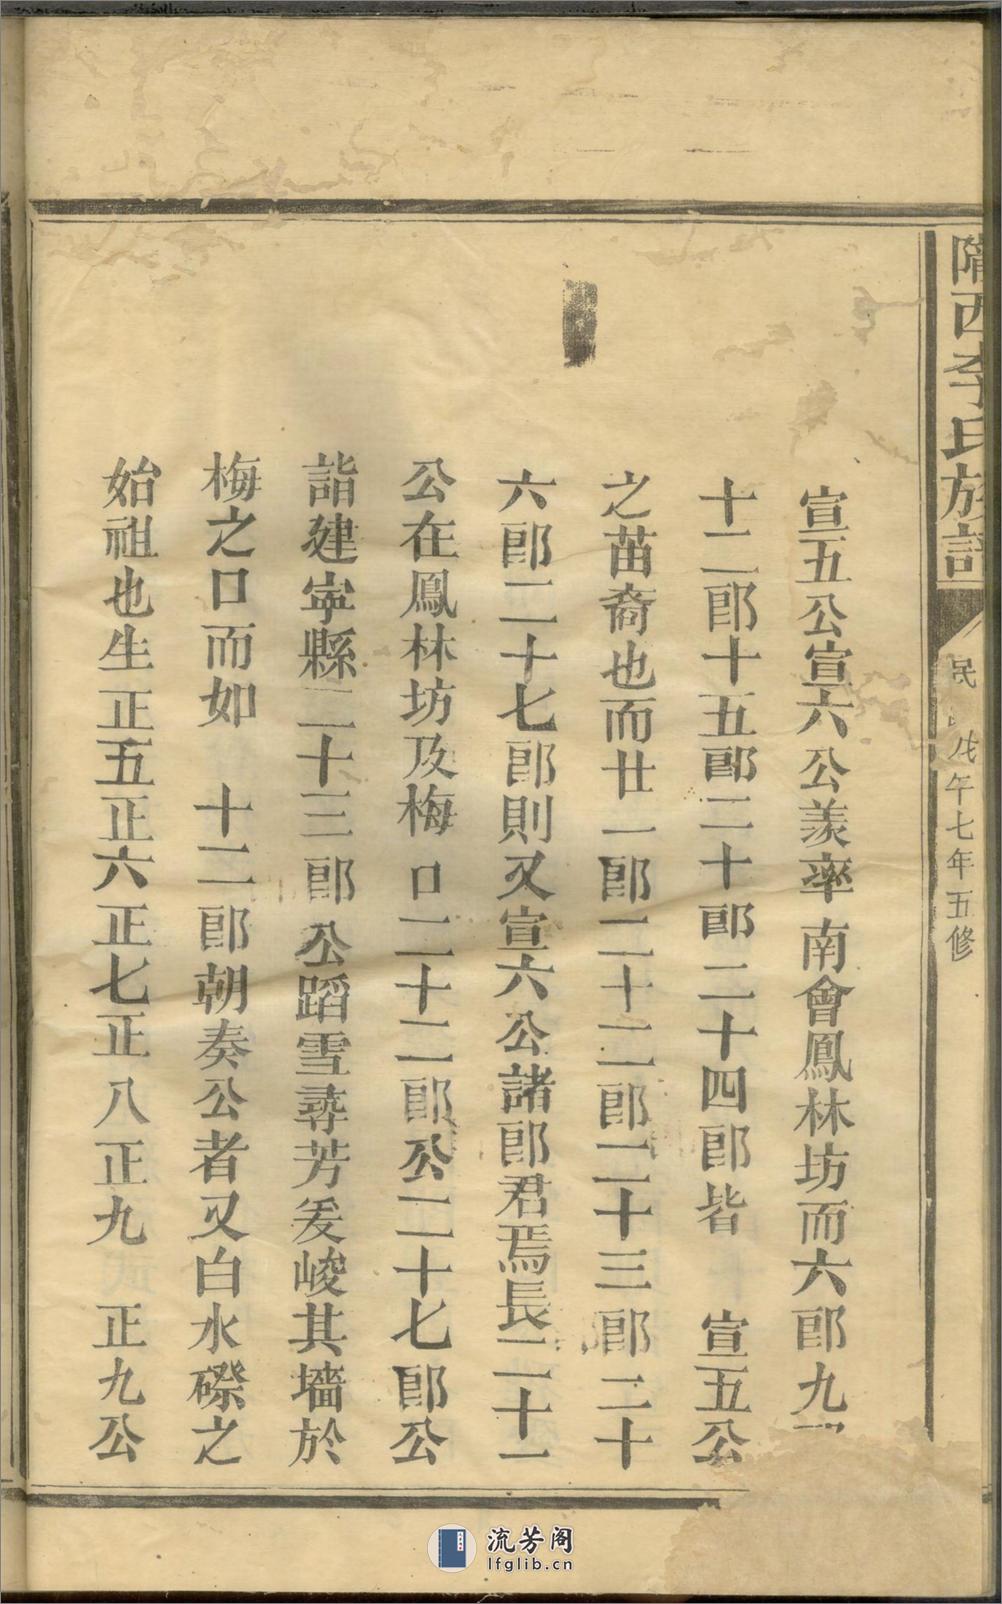 隴西李氏族譜
民 戊午七年五修
宣五公宣六公羨率南會鳳林坊而六郎九
十二郎十五郎二十郎二十四郎皆 宣五公
之苗裔也而廿一郎二十二郎二十三郎二十
六郎二十七郎則又宣六公諸郎君焉長二十一
公在鳳林坊及梅口二十二郎公二十七郎公
詣建寧縣二十三郎公蹈雪尋芳爰峻其墻於
梅之口而如 十二郎朝奏公者又白水磜之
始祖也生正五正六正七正八正九 正九公
流芳阁
lfglib.cn